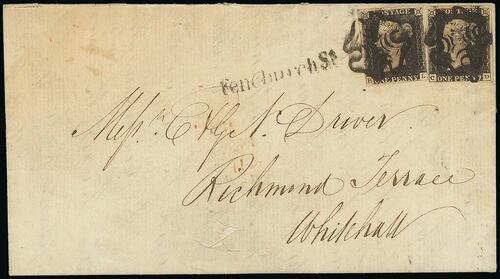 POSTAGE
ONE PENNY L
C ONE PENNY D
Fenchurch St
Mess.rs E & G N. Driver
Richmond Terrace
Whitehall